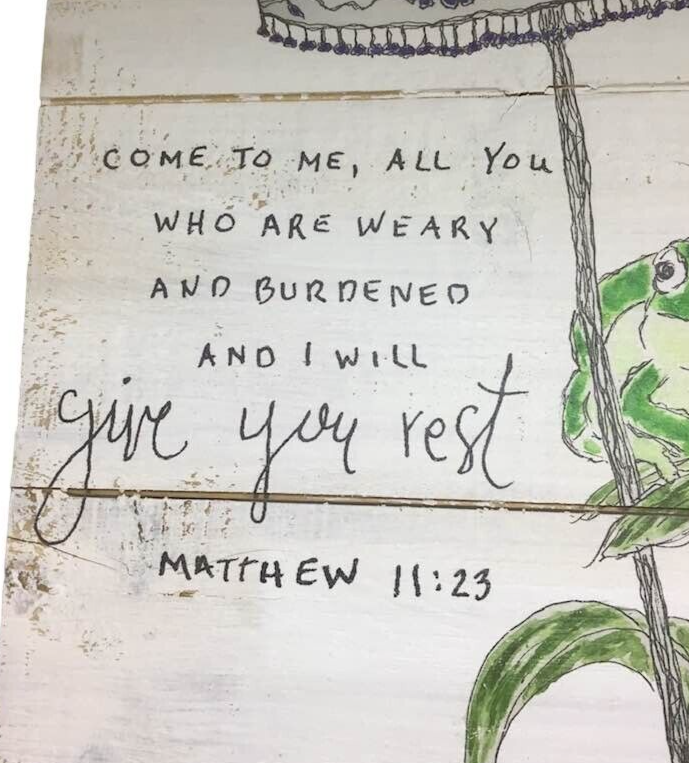 COME TO ME, ALL YOU
WHO ARE WEARY
AND BURDENED
AND I WILL
give you rest
MATTHEW 11:23